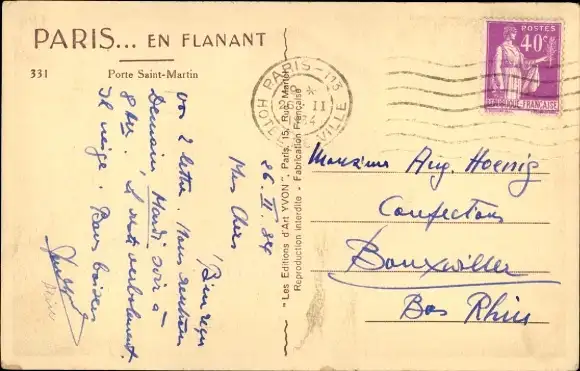 PARIS... EN FLANANT
331 Porte Saint-Martin
26. II. 34
Mes Chers
Bien reçu
vos 2 lettres. Nous
Demain, Mardi soir à
8 hr.
Il neige. Bons baisers
"Les Editions d'Art YVON", Paris, 15, Rue Martel
Reproduction interdite - Fabrication Française
PARIS-113
HOTEL VILLE
POSTES
40c
REPUBLIQUE FRANÇAISE
Monsieur Aug. Hoenig
Confections
Bouxwiller
Bas Rhin